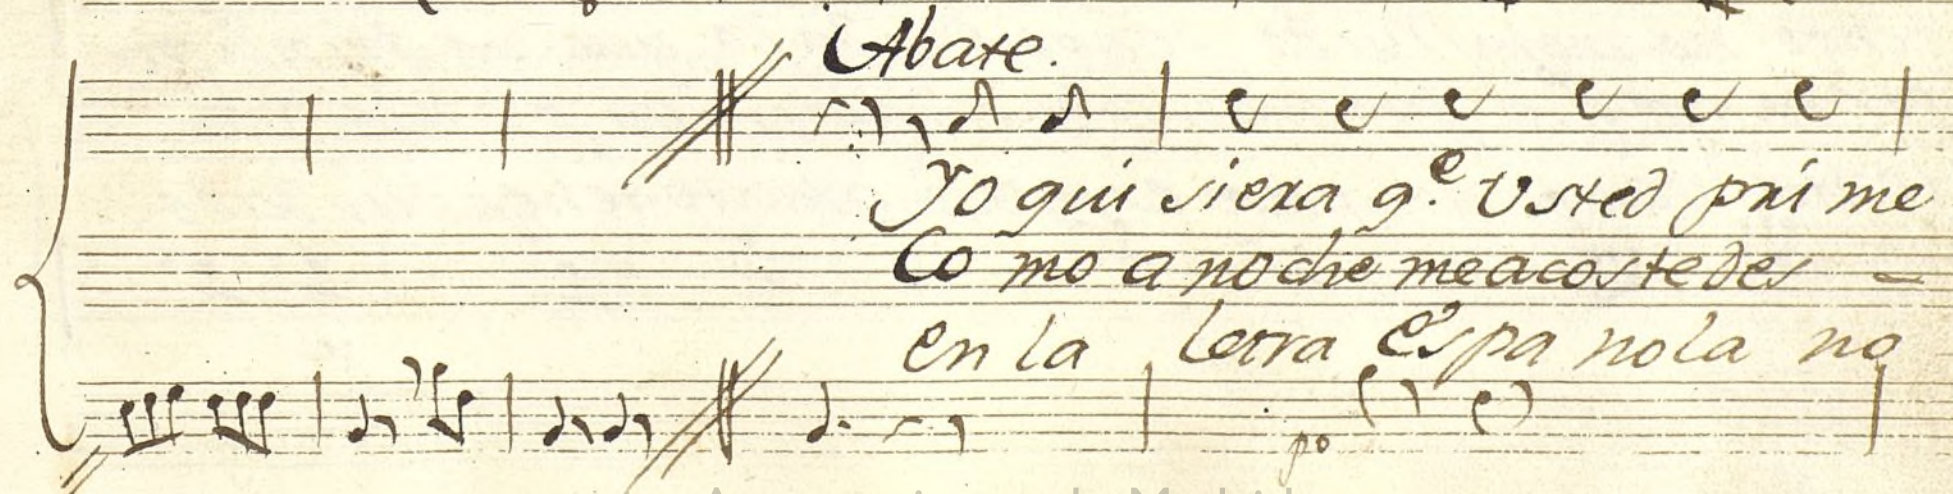 Abate.
Yo qui siera q.e Usted pri me
Co mo a noche me acoste des -
en la letra Espa nola no
po